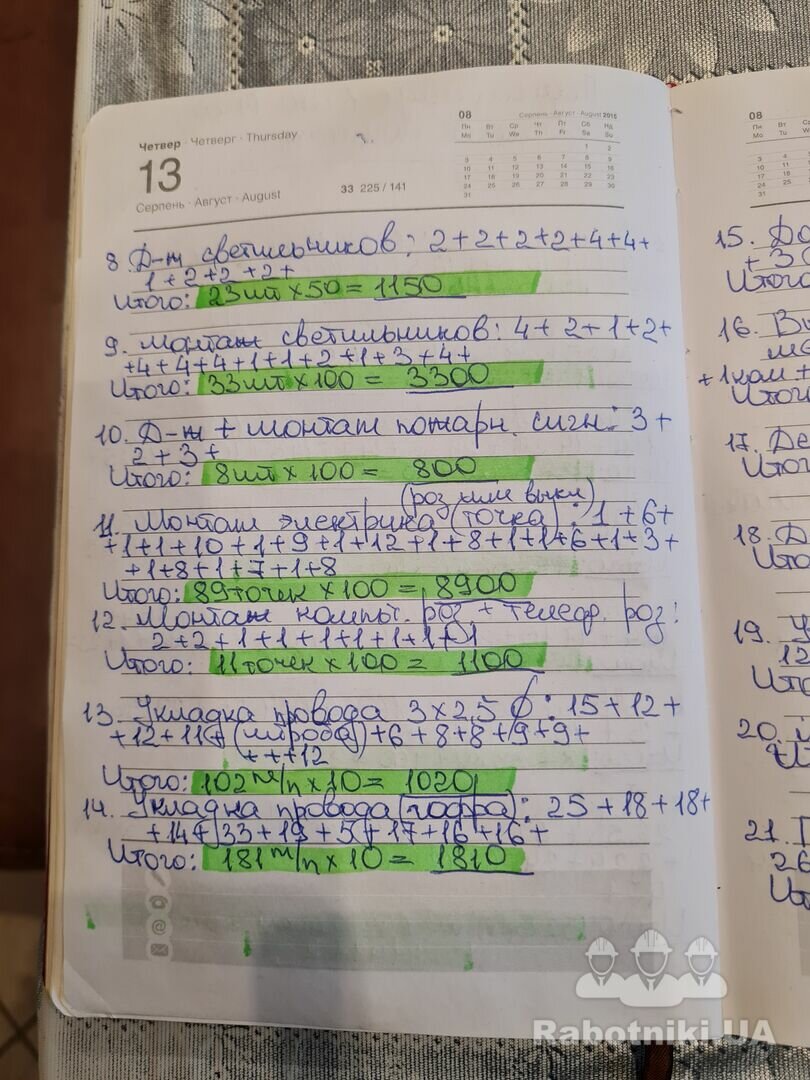 Четвер · Четверг · Thursday
13
Серпень · Август · August
33 225 / 141
08 Серпень · Август · August 2015
Пн Вт Ср Чт Пт Сб Нд
Mo Tu We Th Fr Sa Su
1 2
3 4 5 6 7 8 9
10 11 12 13 14 15 16
17 18 19 20 21 22 23
24 25 26 27 28 29 30
31
8. Д-ж светильников: 2+2+2+2+4+4+
1+2+2+2+
Итого: 23шт x 50 = 1150
9. Монтаж светильников: 4+2+1+2+
+4+4+4+1+1+2+1+3+4+
Итого: 33шт x 100 = 3300
10. Д-ж + монтаж пожарн. сигн.: 3+
2+3+
Итого: 8шт x 100 = 800
(роз или выкл)
11. Монтаж электрика (точка): 1+6+
+1+1+10+1+9+1+12+1+8+1+1+6+1+3+
+1+8+1+7+1+8
Итого: 89точек x 100 = 8900
12. Монтаж компьт. роз. + телеф. роз:
2+2+1+1+1+1+1+1+1
Итого: 11точек x 100 = 1100
13. Укладка провода 3x2,5 : 15+12+
+12+11+ (штроба)+6+8+8+9+9+
+++12
Итого: 102 м/п x 10 = 1020
14. Укладка провода (гофра): 25+18+18+
+14+33+19+5+17+16+16+
Итого: 181 м/п x 10 = 1810
08
Пн
Mo
3 4
10 11
17 18
24 25
31
15.
Итого
16.
+1ком+
Итого
17. Де
Итого
18. Д
19.
12
20.
21.
26
Rabotniki.UA